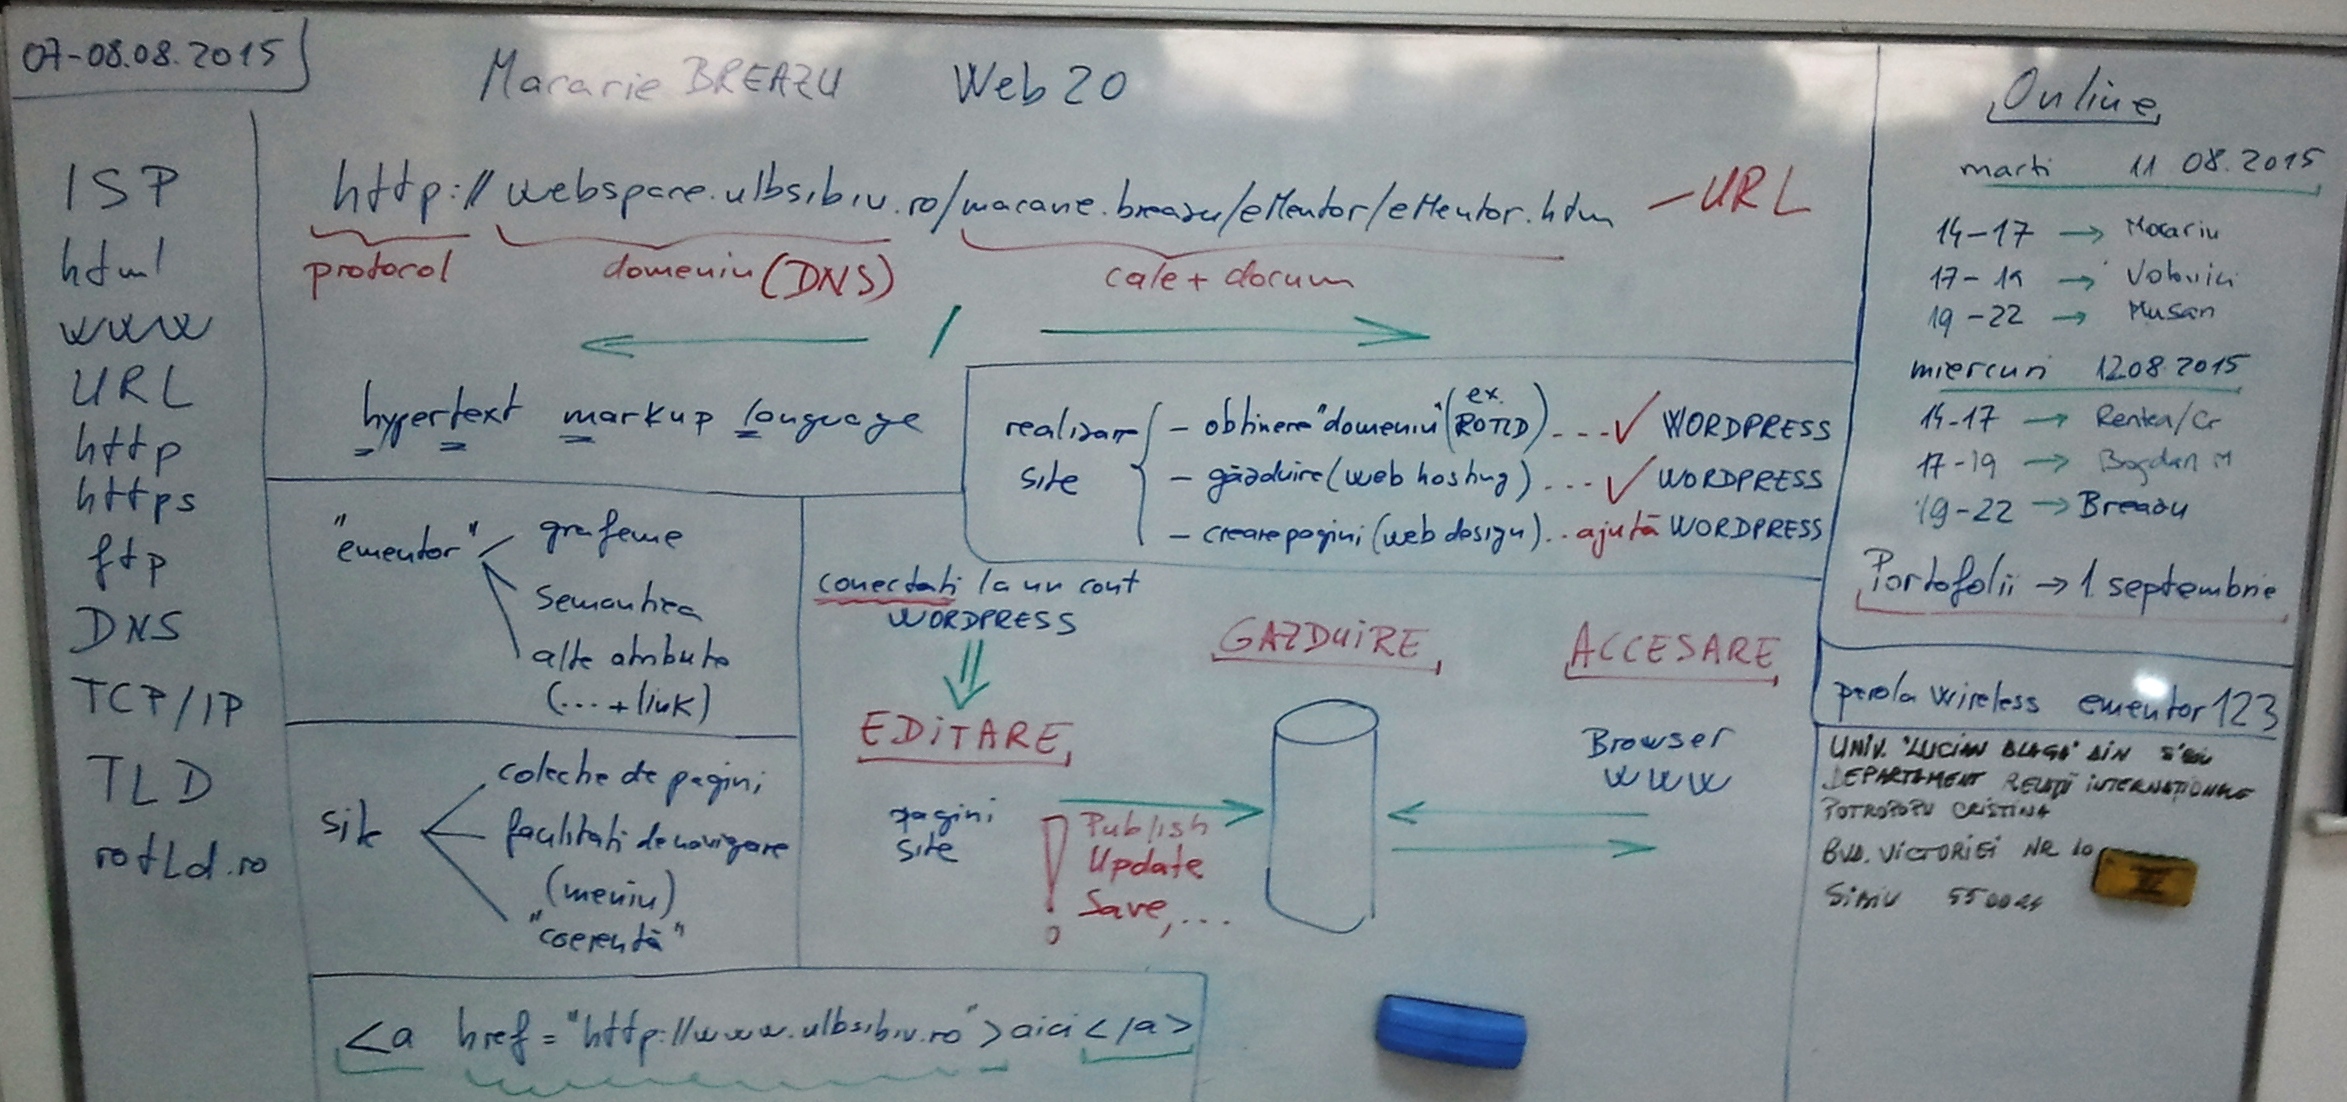 07-08.08.2015
Macarie BREAZU Web 20
ISP
html
www
URL
http
https
ftp
DNS
TCP/IP
TLD
rotld.ro
http://webspace.ulbsibiu.ro/macarie.breazu/eMentor/eMentor.htm — URL
protocol domeniu (DNS) cale + docum
/
hypertext markup language
realizare site
- obtinere "domeniu" (ex. ROTLD) ... ✓ WORDPRESS
- găzduire (web hosting) ... ✓ WORDPRESS
- creare pagini (web design) .. ajută WORDPRESS
"ementor"
grafeme
semantica
alte atribute
(... + link)
site
colectie de pagini
facilitati de navigare
(meniu)
"coerentă"
conectati la un cont
WORDPRESS
EDITARE
pagini
site
! Publish
Update
Save, ...
GAZDUIRE
ACCESARE
Browser
www
<a href="http://www.ulbsibiu.ro">aici</a>
Online
marti 11 08.2015
14-17 → Macariu
17-19 → Volovici
19-22 → Musan
miercuri 12 08 2015
14-17 →
17-19 → Bogdan M
19-22 → Breazu
Portofolii → 1 septembrie
parola wireless ementor123
UNIV. "LUCIAN BLAGA" DIN SIBIU
DEPARTAMENT RELAȚII INTERNAȚIONALE
POTROPOPU CRISTINA
BVD. VICTORIEI NR 10
SIBIU